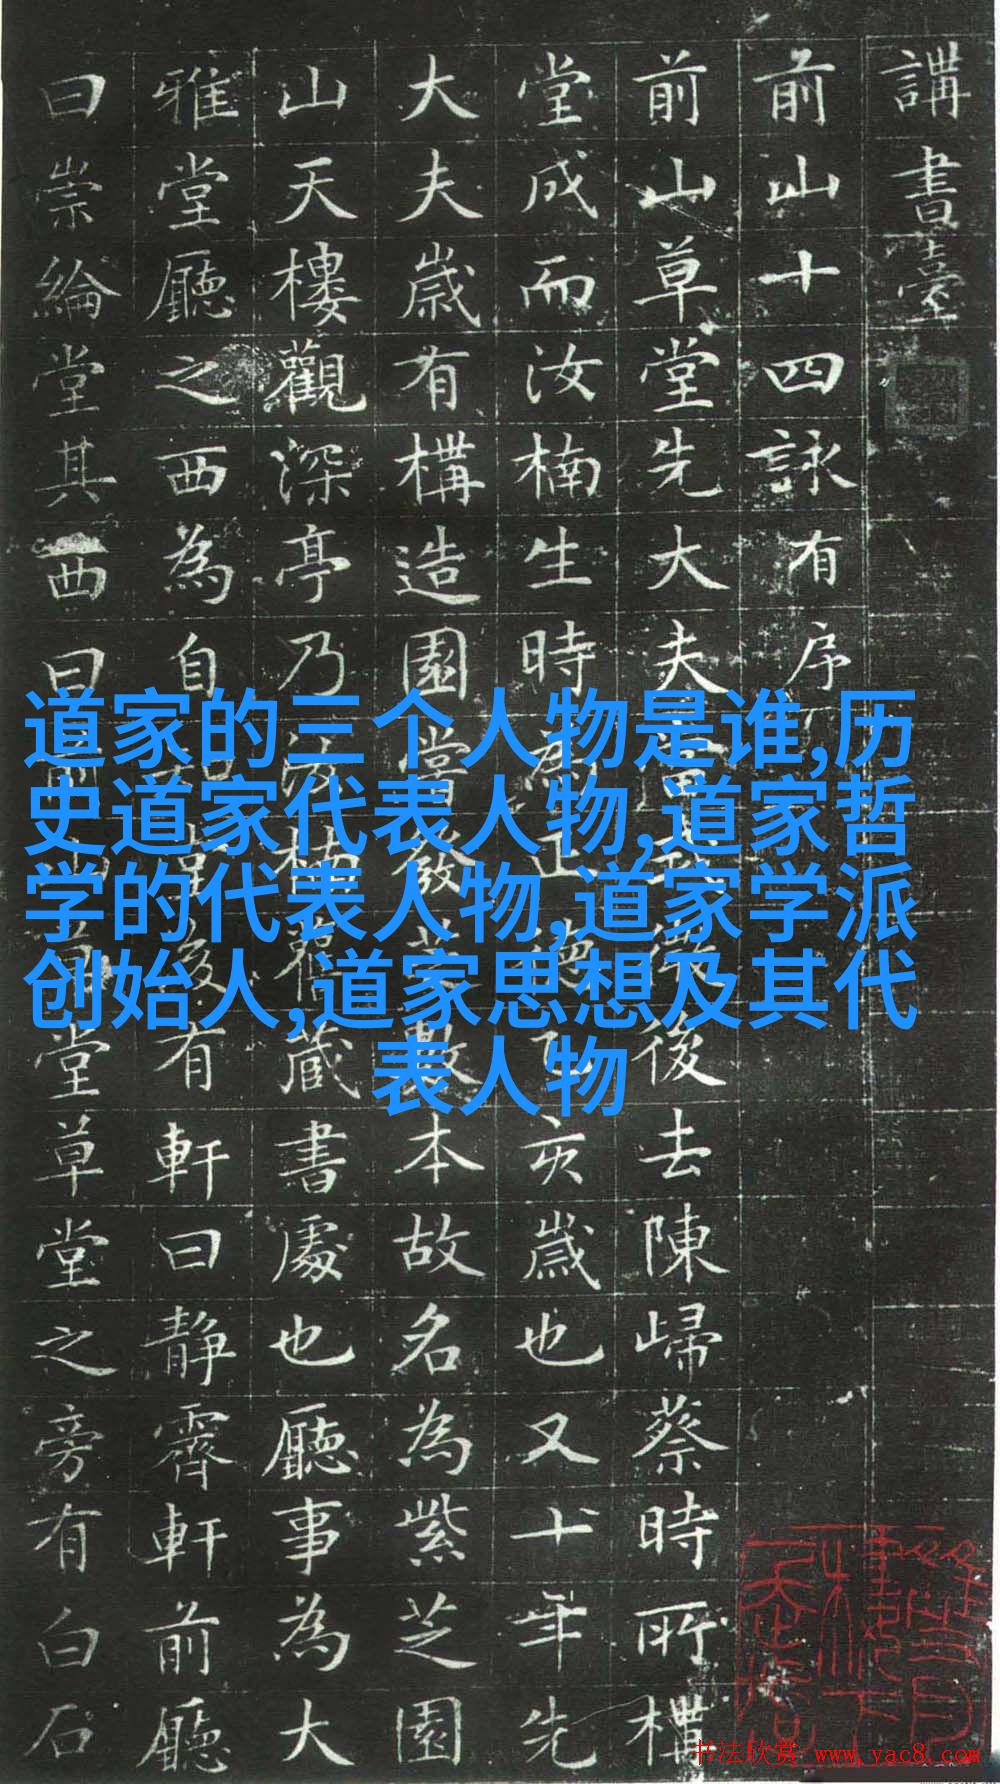 講書臺
前山十四詠有序
前山草堂先大夫後去陳歸蔡時所構
堂成而汝楠生時為正德乙亥歲也又十年先
大夫歲有構造園嘗發芝數本故名為紫芝園
山天樓觀深亭乃汝楠舊藏書處也廳事為大
雅堂廳之西為自知堂後有軒曰静齋軒前廳
曰崇綸堂其西曰前山草堂草堂之旁有白石
道家的三个人物是谁,历
史道家代表人物,道家哲
学的代表人物,道家学派
创始人,道家思想及其代
表人物
书法欣赏 www.yac8.com